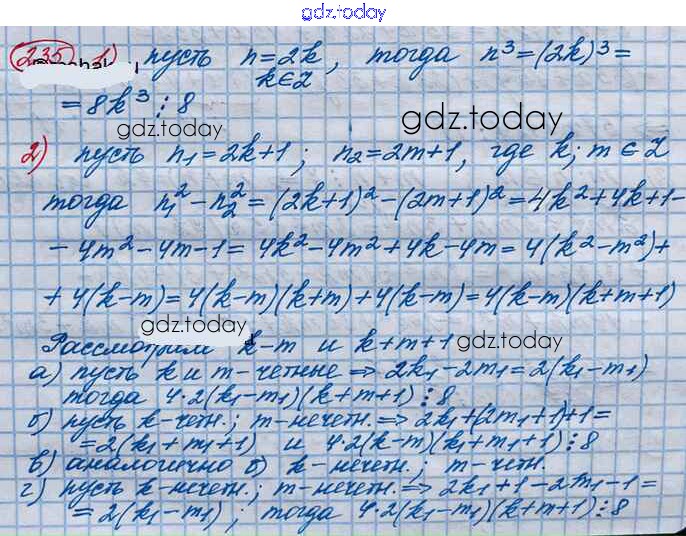 gdz.today
235 1) пусть n=2k, тогда n³=(2k)³=
k∈Z
=8k³⋮8
gdz.today
gdz.today
2) пусть n₁=2k+1; n₂=2m+1, где k; m∈Z
тогда n₁²-n₂²=(2k+1)²-(2m+1)²=4k²+4k+1-
-4m²-4m-1=4k²-4m²+4k-4m=4(k²-m²)+
+4(k-m)=4(k-m)(k+m)+4(k-m)=4(k-m)(k+m+1)
gdz.today
Рассмотрим k-m и k+m+1
gdz.today
а) пусть k и m-четные ⇒ 2k₁-2m₁=2(k₁-m₁)
тогда 4·2(k₁-m₁)(k+m+1)⋮8
б) пусть k-четн.; m-нечетн.⇒2k₁+(2m₁+1)+1=
=2(k₁+m₁+1) и 4·2(k-m)(k₁+m₁+1)⋮8
в) аналогично б) k-нечетн.; m-четн.
г) пусть k-нечетн.; m-нечетн.⇒2k₁+1-2m₁-1=
=2(k₁-m₁); тогда 4·2(k₁-m₁)(k+m+1)⋮8